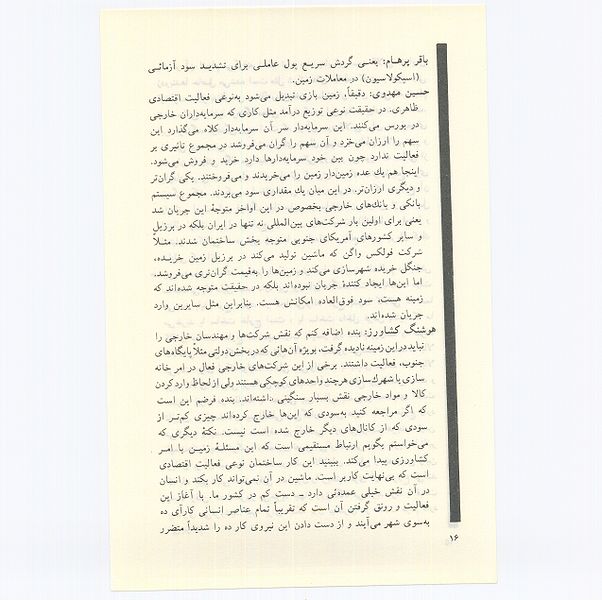 باقر پرهام: یعنی گردش سریع پول عاملی برای تشدید سود آزمائی
(اسپکولاسیون) در معاملات زمین.
حسین مهدوی: دقیقاً. زمین بازی تبدیل می‌شود به‌نوعی فعالیت اقتصادی
ظاهری. در حقیقت نوعی توزیع درآمد مثل کاری که سرمایه‌داران خارجی
در بورس می‌کنند. این سرمایه‌دار سر آن سرمایه‌دار کلاه می‌گذارد این
سهم را ارزان می‌خرد و آن سهم را گران می‌فروشد در مجموع تاثیری بر
فعالیت ندارد چون بین خود سرمایه‌دارها دارد خرید و فروش می‌شود.
اینجا هم یك عده زمین‌دار زمین را می‌خریدند و می‌فروختند. یکی گران‌تر
و دیگری ارزان‌تر. در این میان یك مقداری سود می‌بردند. مجموع سیستم
بانکی و بانك‌های خارجی بخصوص در این اواخر متوجهٔ این جریان شد
یعنی برای اولین بار شرکت‌های بین‌المللی نه تنها در ایران بلکه در برزیل
و سایر کشورهای آمریکای جنوبی متوجه بخش ساختمان شدند. مثلاً
شرکت فولکس واگن که ماشین تولید می‌کند در برزیل زمین خریده،
جنگل خریده شهرسازی می‌کند و زمین‌ها را به‌قیمت گران‌تری می‌فروشد.
اما این‌ها ایجاد کنندهٔ جریان نبوده‌اند بلکه در حقیقت متوجه شده‌اند که
زمینه هست، سود فوق‌العاده امکانش هست. بنابراین مثل سایرین وارد
جریان شده‌اند.
هوشنگ کشاورز: بنده اضافه کنم که نقش شرکت‌ها و مهندسان خارجی را
نباید در این زمینه نادیده گرفت، بویژه آن‌هائی که در بخش دولتی مثلاً پایگاه‌های
جنوب، فعالیت داشتند. برخی از این شرکت‌های خارجی فعال در امر خانه
سازی یا شهرك‌سازی هرچند واحدهای کوچکی هستند ولی از لحاظ وارد کردن
کالا و مواد خارجی نقش بسیار سنگینی داشته‌اند. بنده فرضم این است
که اگر مراجعه کنید به‌سودی که این‌ها خارج کرده‌اند چیزی کم‌تر از
سودی که از کانال‌های دیگر خارج شده است نیست. نکتهٔ دیگری که
می‌خواستم بگویم ارتباط مستقیمی است که این مسئلهٔ زمین با امر
کشاورزی پیدا می‌کند. ببینید این کار ساختمان نوعی فعالیت اقتصادی
است که بی‌نهایت کاربر است. ماشین در آن نمی‌تواند کار بکند و انسان
در آن نقش خیلی عمده‌ئی دارد ـ دست کم در کشور ما. با آغاز این
فعالیت و رونق گرفتن آن است که تقریباً تمام عناصر انسانی کارآی ده
به‌سوی شهر می‌آیند و از دست دادن این نیروی کار ده را شدیداً متضرر
۱۶